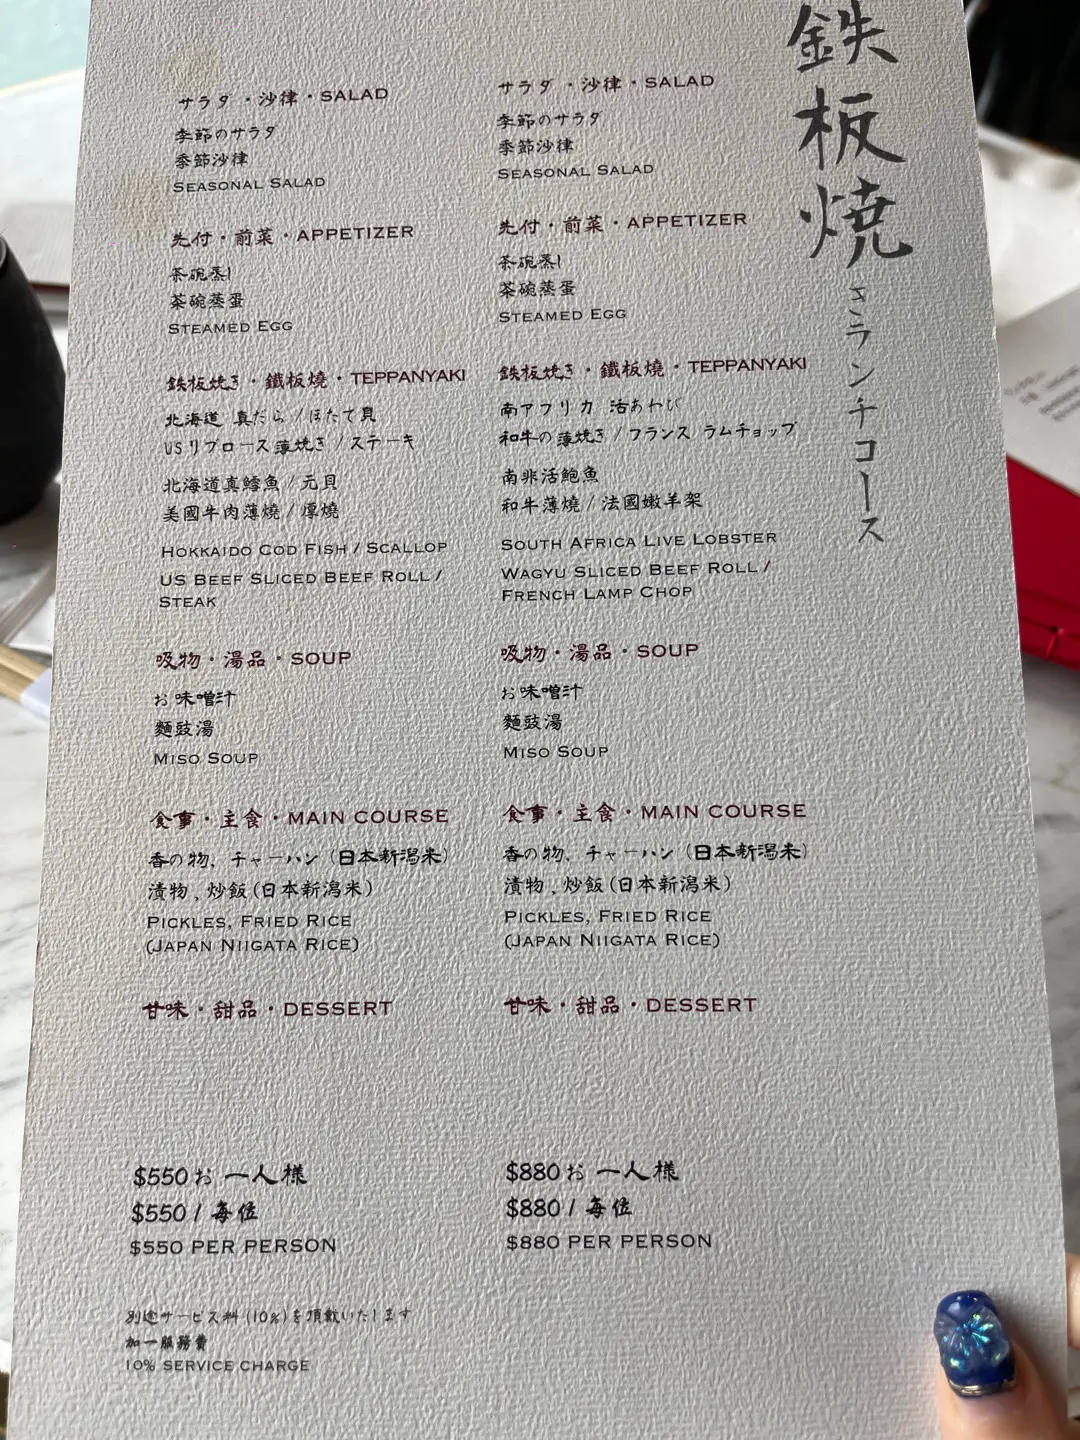 鉄板焼きランチコース
サラダ・沙律・SALAD
季節のサラダ
季節沙律
SEASONAL SALAD
先付・前菜・APPETIZER
茶碗蒸し
茶碗蒸蛋
STEAMED EGG
鉄板焼き・鐵板燒・TEPPANYAKI
北海道 真だら / ほたて貝
USリブロース薄焼き / ステーキ
北海道真鱈魚 / 元貝
美國牛肉薄燒 / 厚燒
HOKKAIDO COD FISH / SCALLOP
US BEEF SLICED BEEF ROLL /
STEAK
吸物・湯品・SOUP
お味噌汁
麵豉湯
MISO SOUP
食事・主食・MAIN COURSE
香の物、チャーハン (日本新潟米)
漬物、炒飯(日本新潟米)
PICKLES, FRIED RICE
(JAPAN NIIGATA RICE)
甘味・甜品・DESSERT
$550お一人様
$550 / 每位
$550 PER PERSON
サラダ・沙律・SALAD
季節のサラダ
季節沙律
SEASONAL SALAD
先付・前菜・APPETIZER
茶碗蒸し
茶碗蒸蛋
STEAMED EGG
鉄板焼き・鐵板燒・TEPPANYAKI
南アフリカ 活あわび
和牛の薄焼き / フランス ラムチョップ
南非活鮑魚
和牛薄燒 / 法國嫩羊架
SOUTH AFRICA LIVE LOBSTER
WAGYU SLICED BEEF ROLL /
FRENCH LAMP CHOP
吸物・湯品・SOUP
お味噌汁
麵豉湯
MISO SOUP
食事・主食・MAIN COURSE
香の物、チャーハン (日本新潟米)
漬物、炒飯(日本新潟米)
PICKLES, FRIED RICE
(JAPAN NIIGATA RICE)
甘味・甜品・DESSERT
$880お一人様
$880 / 每位
$880 PER PERSON
別途サービス料(10%)を頂戴いたします
加一服務費
10% SERVICE CHARGE